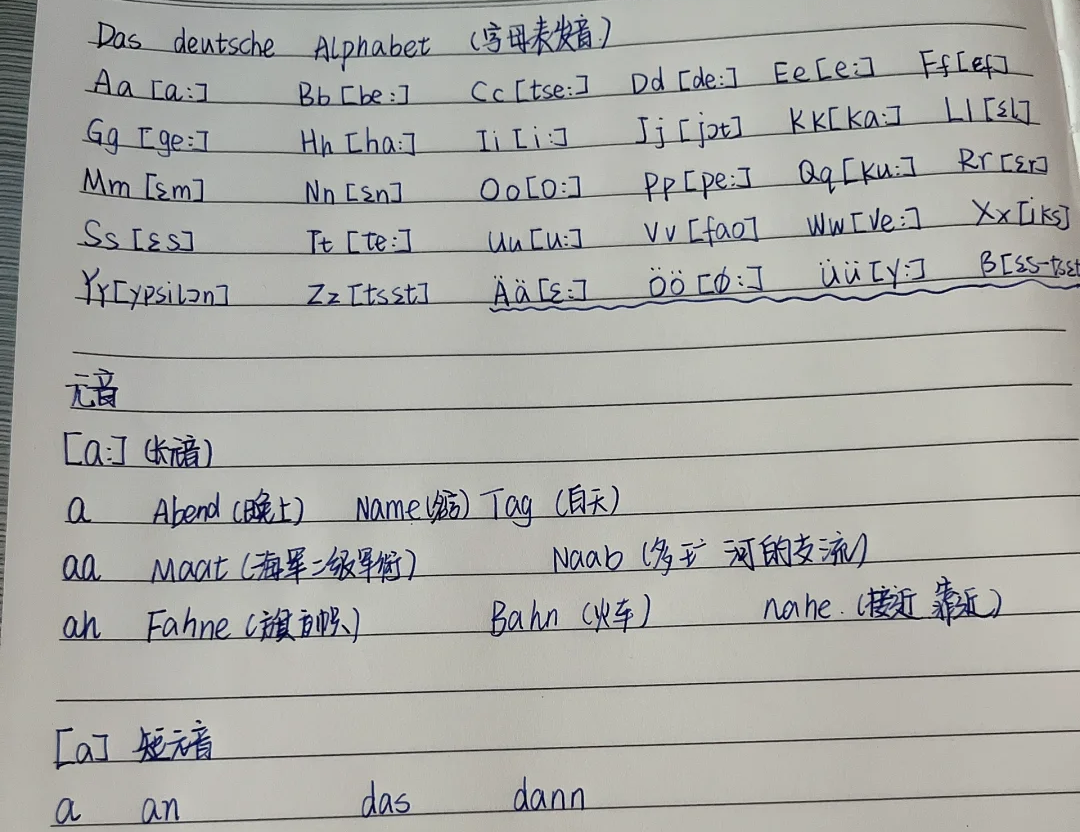 Das deutsche Alphabet (字母表发音)
Aa [a:] Bb [be:] Cc [tse:] Dd [de:] Ee [e:] Ff [ɛf]
Gg [ge:] Hh [ha:] Ii [i:] Jj [jɔt] Kk [ka:] Ll [ɛl]
Mm [ɛm] Nn [ɛn] Oo [o:] Pp [pe:] Qq [ku:] Rr [ɛr]
Ss [ɛs] Tt [te:] Uu [u:] Vv [fao] Ww [ve:] Xx [iks]
Yy [ypsilɔn] Zz [tsɛt] Ää [ɛ:] Öö [ø:] Üü [y:] ß [ɛs-tsɛt
元音
[a:] (长元音)
a Abend (晚上) Name (名字) Tag (白天)
aa Maat (海军二级军衔) Naab (多 河的支流)
ah Fahne (旗帜) Bahn (火车) nahe. (接近 靠近)
[a] 短元音
a an das dann